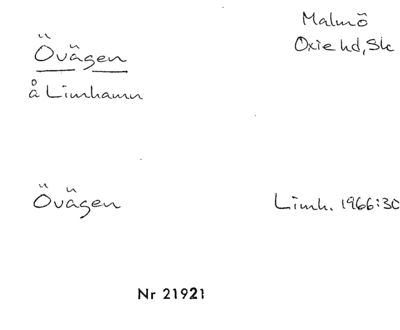 Malmö
Oxie hd, Sk
Övägen
å Limhamn
Övägen
Limh. 1966:30
Nr 21921